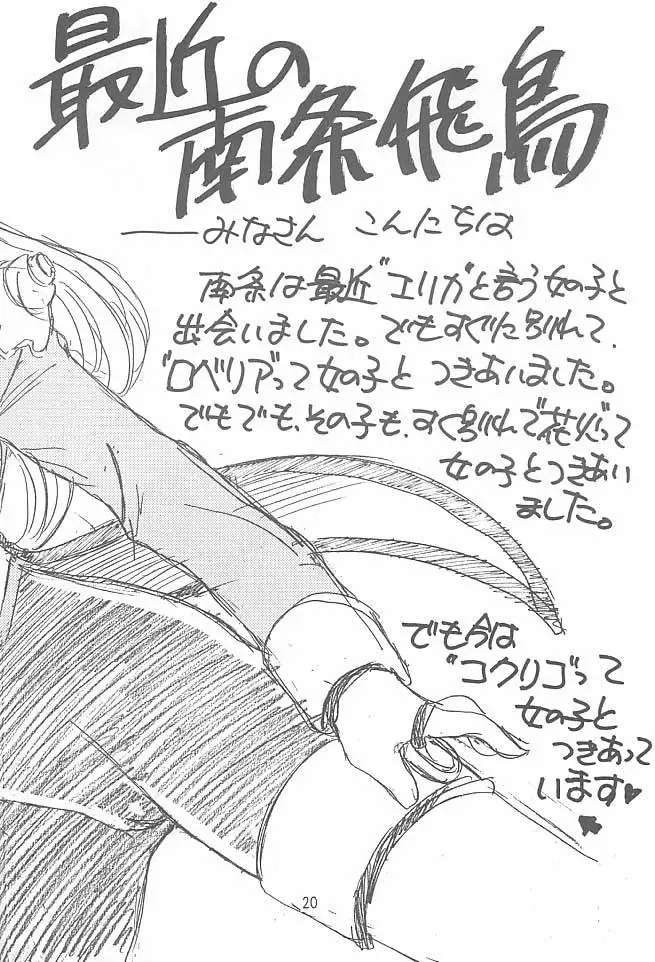 最近の
南条飛鳥
――みなさん こんにちは
南条は最近"エリカ"と言う女の子と
出会いました。でもすぐに別れて、
"ロベリア"って女の子と つきあいました。
でもでも、その子も、すぐ別れて"花火"って
女の子とつきあい
ました。
でも今は
"コクリコ"って
女の子と
つきあって
います♥
20